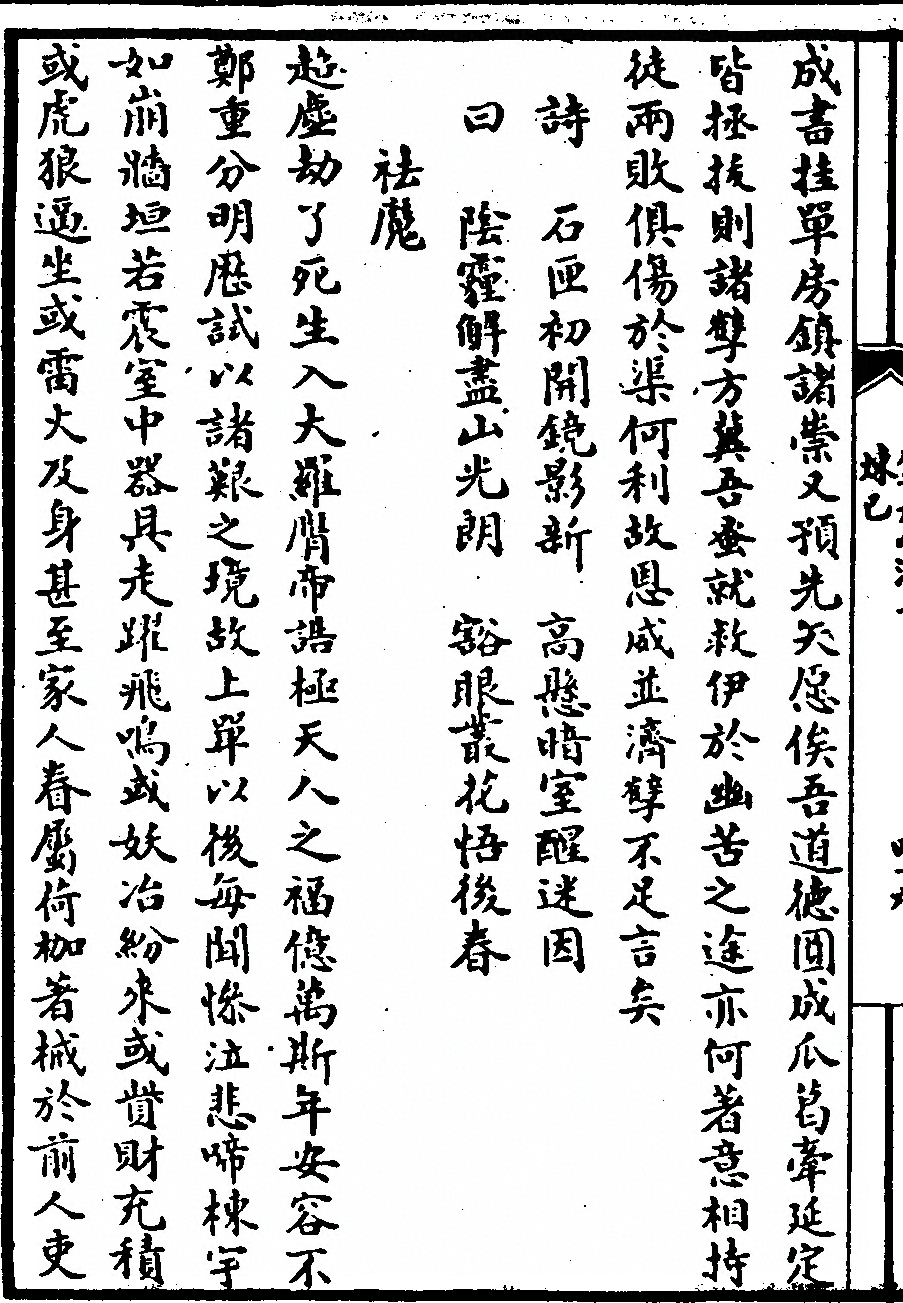 煉己
成書挂單房鎮諸祟又預先矢愿俟吾道德圓成瓜葛牽延定
皆拯拔則諸孽方冀吾蚤就救伊於幽苦之途亦何著意相持
徒兩敗俱傷於渠何利故恩威並濟孽不足言矣
詩　石匣初開鏡影新　高懸暗室醒迷因
曰　陰霾解盡山光朗　豁眼叢花悟後春
祛魔
超塵劫了死生入大羅膺帝誥極天人之福億萬斯年安容不
鄭重分明歷試以諸艱之境故上單以後每聞慘泣悲啼棟宇
如崩牆垣若震室中器具走躍飛鳴或妖冶紛來或貲財充積
或虎狼逼坐或雷火及身甚至家人眷屬荷枷著械於前人吏